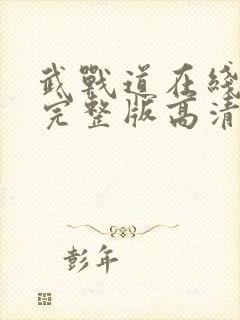 武戰道在綫
完整版高清
彭年